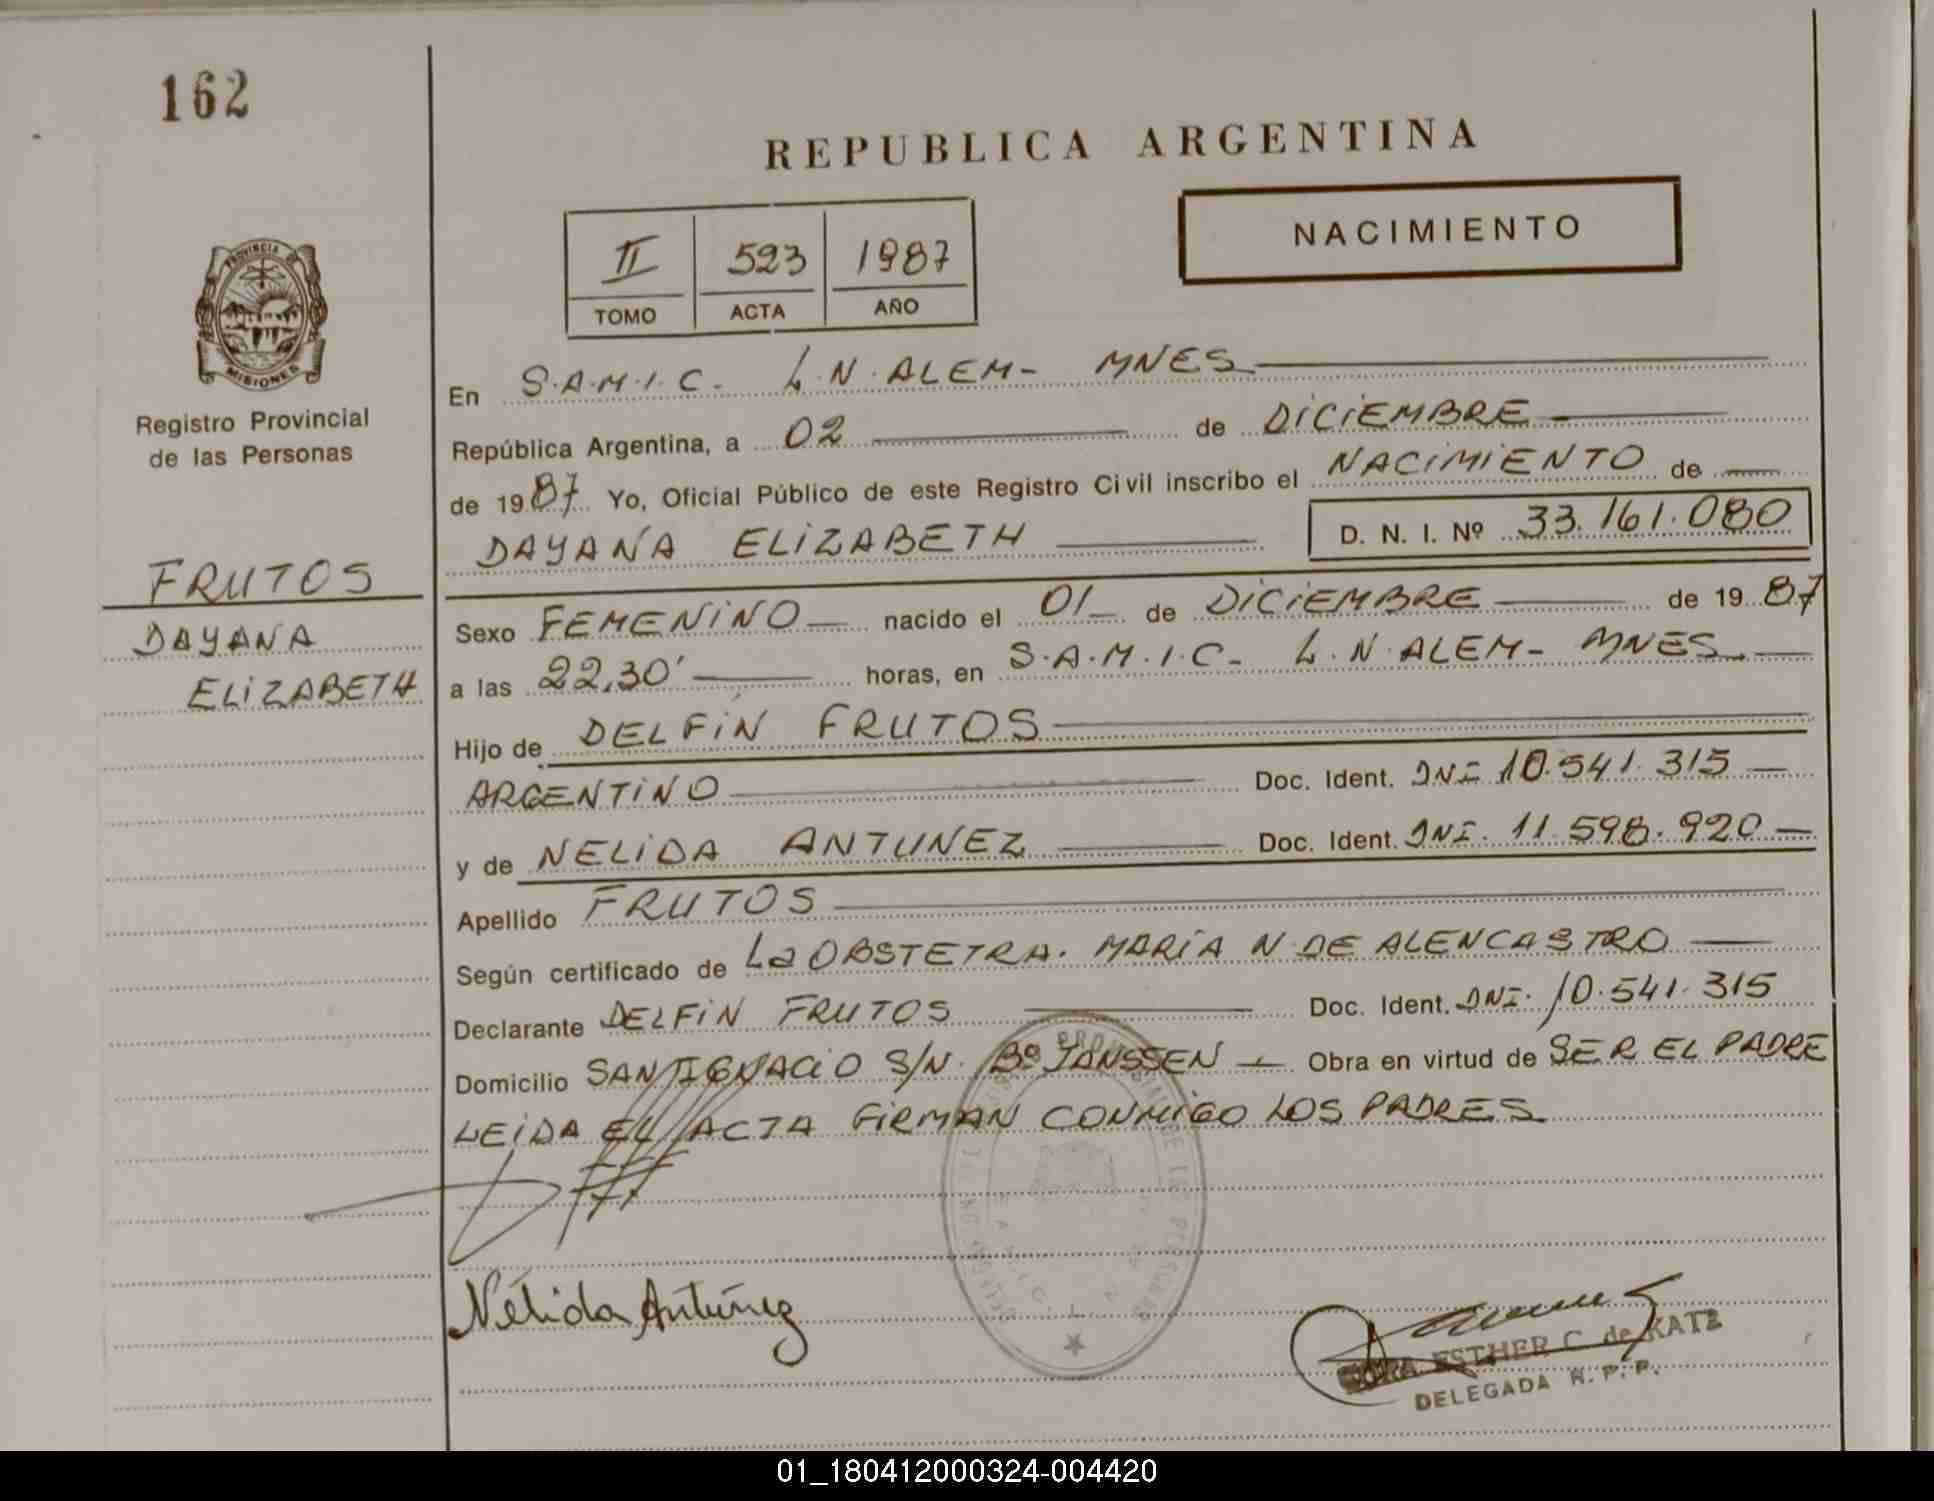 162
REPUBLICA ARGENTINA
NACIMIENTO
II 523 1987
TOMO ACTA AÑO
PROVINCIA DE
MISIONES
Registro Provincial
de las Personas
FRUTOS
DAYANA
ELIZABETH
En S.A.M.I.C. L.N.ALEM- MNES
República Argentina, a 02 de DICIEMBRE
de 1987 Yo, Oficial Público de este Registro Civil inscribo el NACIMIENTO de
DAYANA ELIZABETH D. N. I. Nº 33.161.080
Sexo FEMENINO nacido el 01 de DICIEMBRE de 1987
a las 22,30' horas, en S.A.M.I.C- L.N.ALEM- MNES.
Hijo de DELFÍN FRUTOS
ARGENTINO Doc. Ident. DNI 10.541.315
y de NELIDA ANTUNEZ Doc. Ident. DNI. 11.598.920
Apellido FRUTOS
Según certificado de La OBSTETRA. MARÍA N DE ALENCASTRO
Declarante DELFIN FRUTOS Doc. Ident. DNI. 10.541.315
Domicilio SAN IGNACIO S/N. Bº JANSSEN Obra en virtud de SER EL PADRE
LEIDA EL ACTA FIRMAN CONMIGO LOS PADRES
Nélida Antúnez
ESTHER C. de KATZ
DELEGADA R. P. P.
01_180412000324-004420